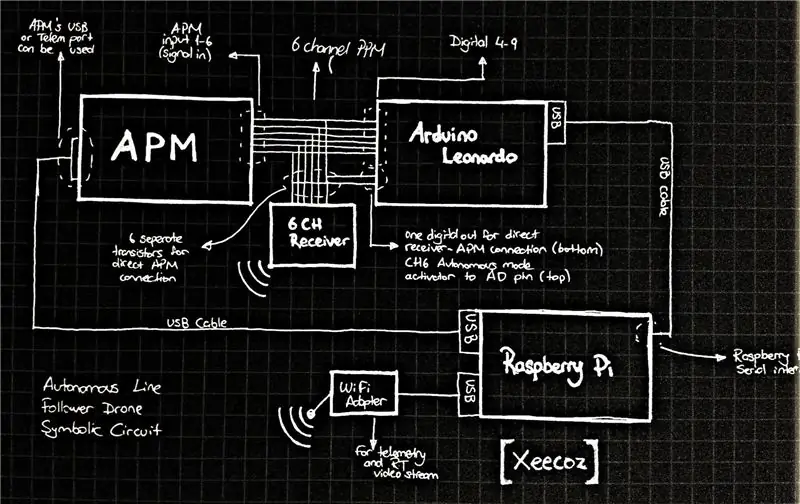 APM's USB
or Telem port
can be used
APM
input 1-6
(signal in)
6 channel PPM
Digital 4-9
APM
Arduino
Leonardo
USB
USB Cable
6 CH
Receiver
6 seperate
transistors for
direct APM
connection
one digital out for direct
receiver-APM connection (bottom)
CH6 Autonomous mode
activator to AD pin (top)
USB Cable
USB
Raspberry Pi
USB
Raspberry
Serial inter
WiFi
Adapter
for telemetry
and RT
video stream
Autonomous Line
Follower Drone
Symbolic Circuit
[Xeecoz]